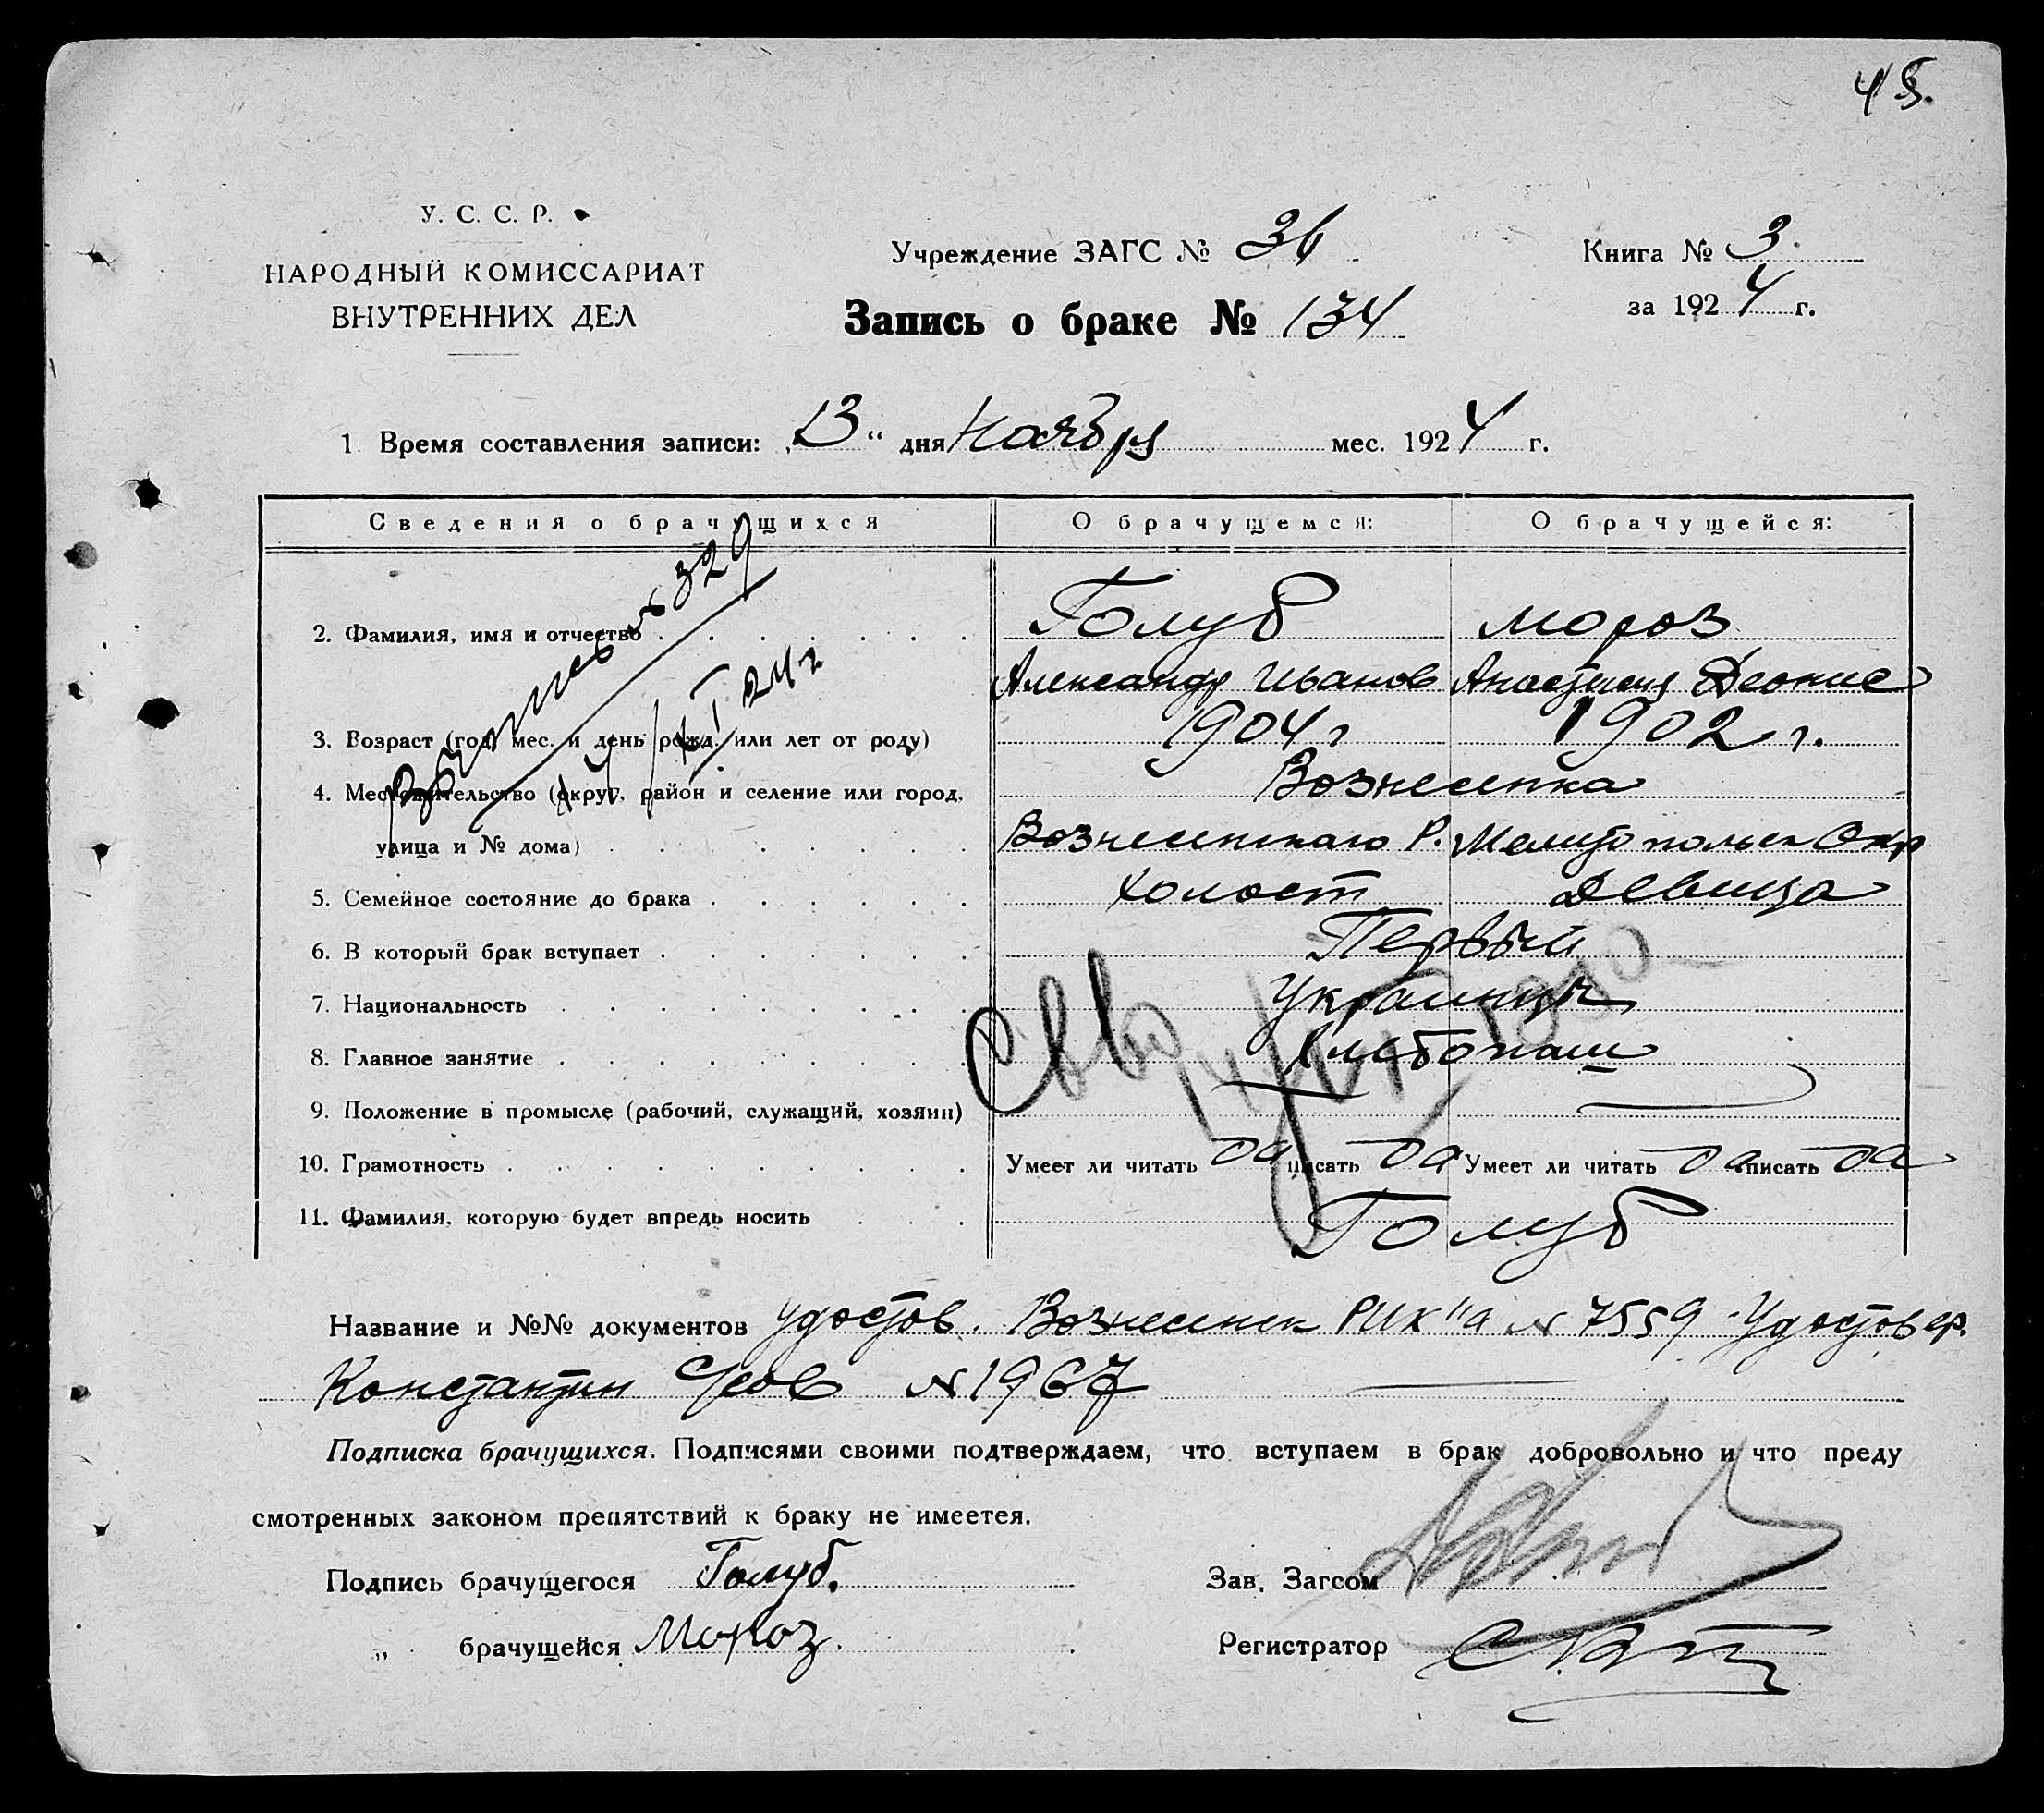 45.
У. С. С. Р.
НАРОДНЫЙ КОМИССАРИАТ
ВНУТРЕННИХ ДЕЛ
Учреждение ЗАГС № 36
Книга № 3.
за 1924 г.
Запись о браке № 134
1 Время составления записи: „13“ дня Ноября мес. 1924 г.
Сведения о брачущихся О брачущемся: О брачущейся:
2. Фамилия, имя и отчество Голуб Мороз
Александр Иванов Анастасия Деонис
3. Возраст (год, мес. и день рожд. или лет от роду) 1904 г 1902 г.
4. Местожительство (округ, район и селение или город, Вознесенка
улица и № дома) Вознесенскаго Р. Мелитопольск Окр
5. Семейное состояние до брака холост девица
6. В который брак вступает Первый
7. Национальность Украинцы
8. Главное занятие Хлебопаш
9. Положение в промысле (рабочий, служащий, хозяин)
10. Грамотность Умеет ли читать да писать да Умеет ли читать да писать да
11. Фамилия, которую будет впредь носить Голуб
Выпись № 329
XI 24 г
Название и №№ документов Удостов. Вознесенск РИК"а № 7559 Удостовер.
Константин № 1967
Подписка брачущихся. Подписями своими подтверждаем, что вступаем в брак добровольно и что преду
смотренных законом препятствий к браку не имеется.
Подпись брачущегося Голуб.
Зав. Загсом
„ брачущейся Мороз.
Регистратор